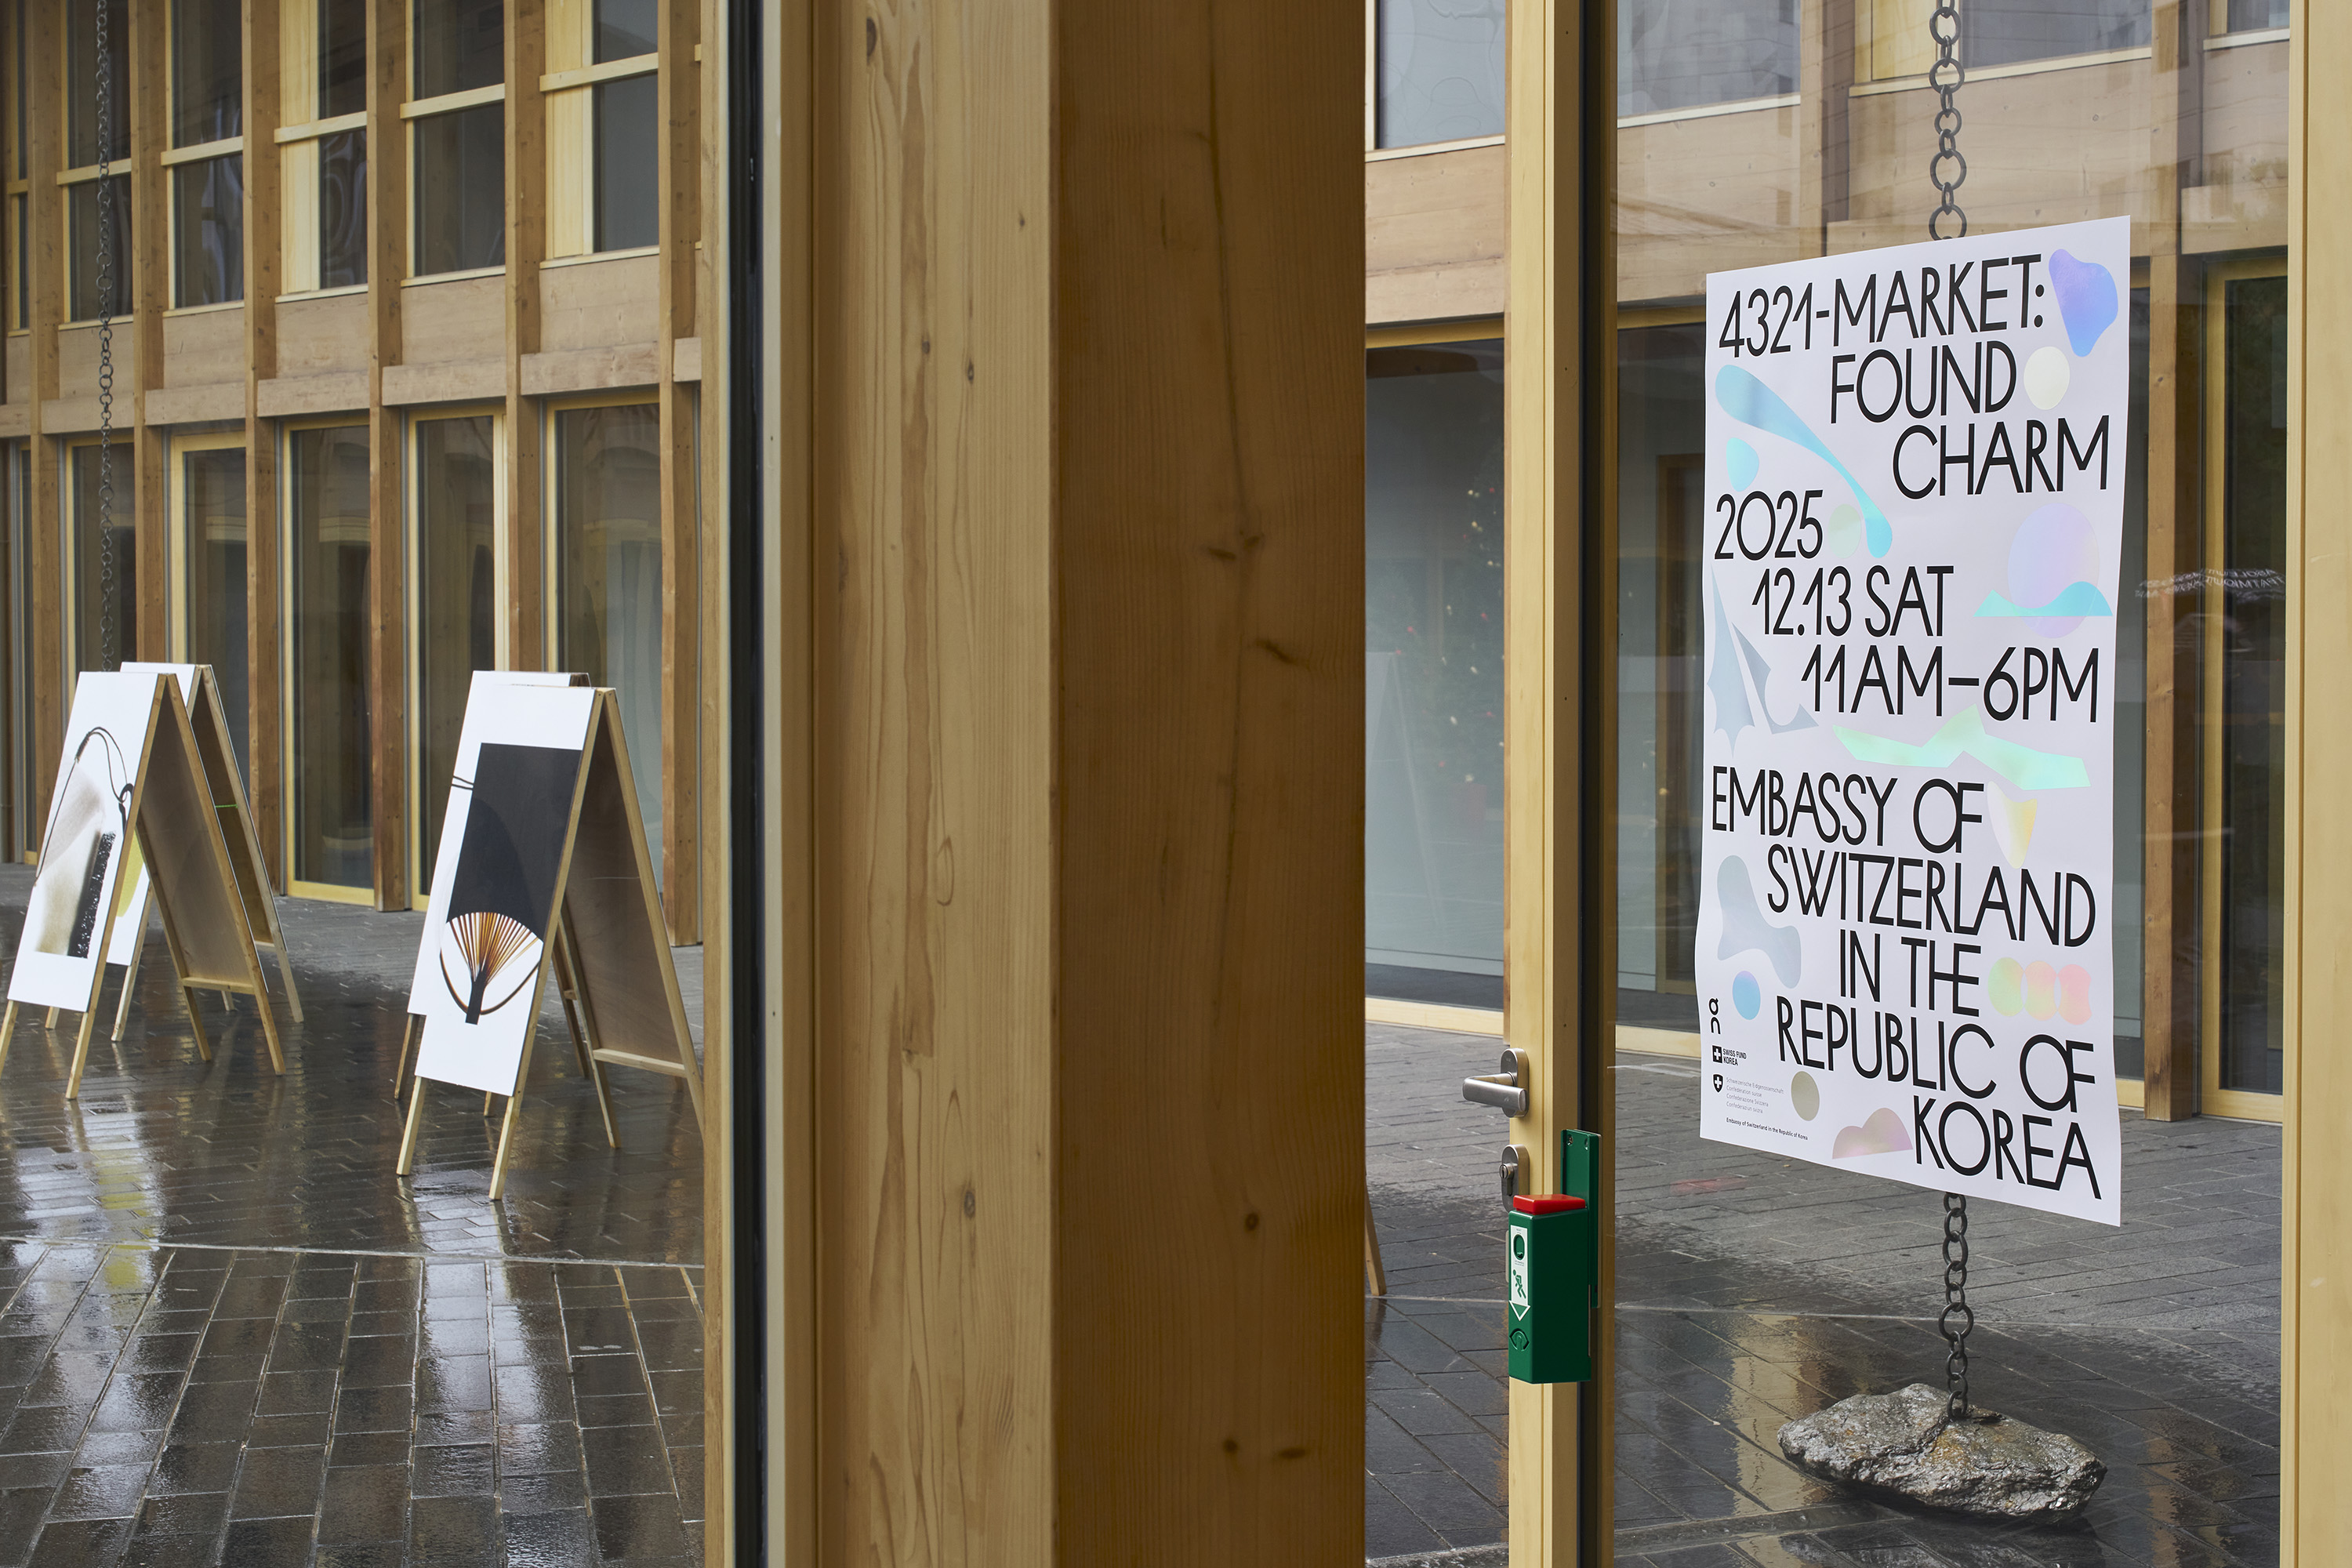 4321-MARKET:
FOUND
CHARM
2025
12.13 SAT
11AM–6PM
EMBASSY OF
SWITZERLAND
IN THE
REPUBLIC OF
KOREA
SWISS FUND
KOREA
Schweizerische Eidgenossenschaft
Confédération suisse
Confederazione Svizzera
Confederaziun svizra
Embassy of Switzerland in the Republic of Korea